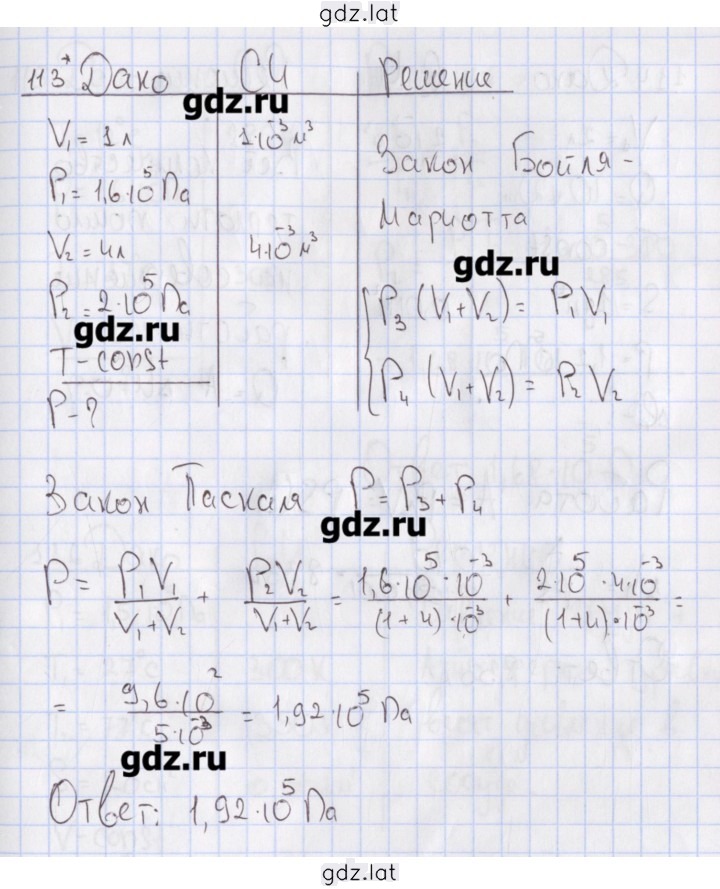 gdz.lat
113* Дано СИ Решение
gdz.ru
V₁ = 1л 1·10⁻³ м³
P₁ = 1,6·10⁵ Па
V₂ = 4л 4·10⁻³ м³
P₂ = 2·10⁵ Па
gdz.ru
T-const
P-?
Закон Бойля-
Мариотта
gdz.ru
P₃ (V₁+V₂) = P₁V₁
P₄ (V₁+V₂) = P₂V₂
Закон Паскаля P = P₃ + P₄
gdz.ru
P = P₁V₁/(V₁+V₂) + P₂V₂/(V₁+V₂) = 1,6·10⁵·10⁻³/((1+4)·10⁻³) + 2·10⁵·4·10⁻³/((1+4)·10⁻³) =
= 9,6·10²/(5·10⁻³) = 1,92·10⁵ Па
gdz.ru
Ответ: 1,92·10⁵ Па
gdz.lat